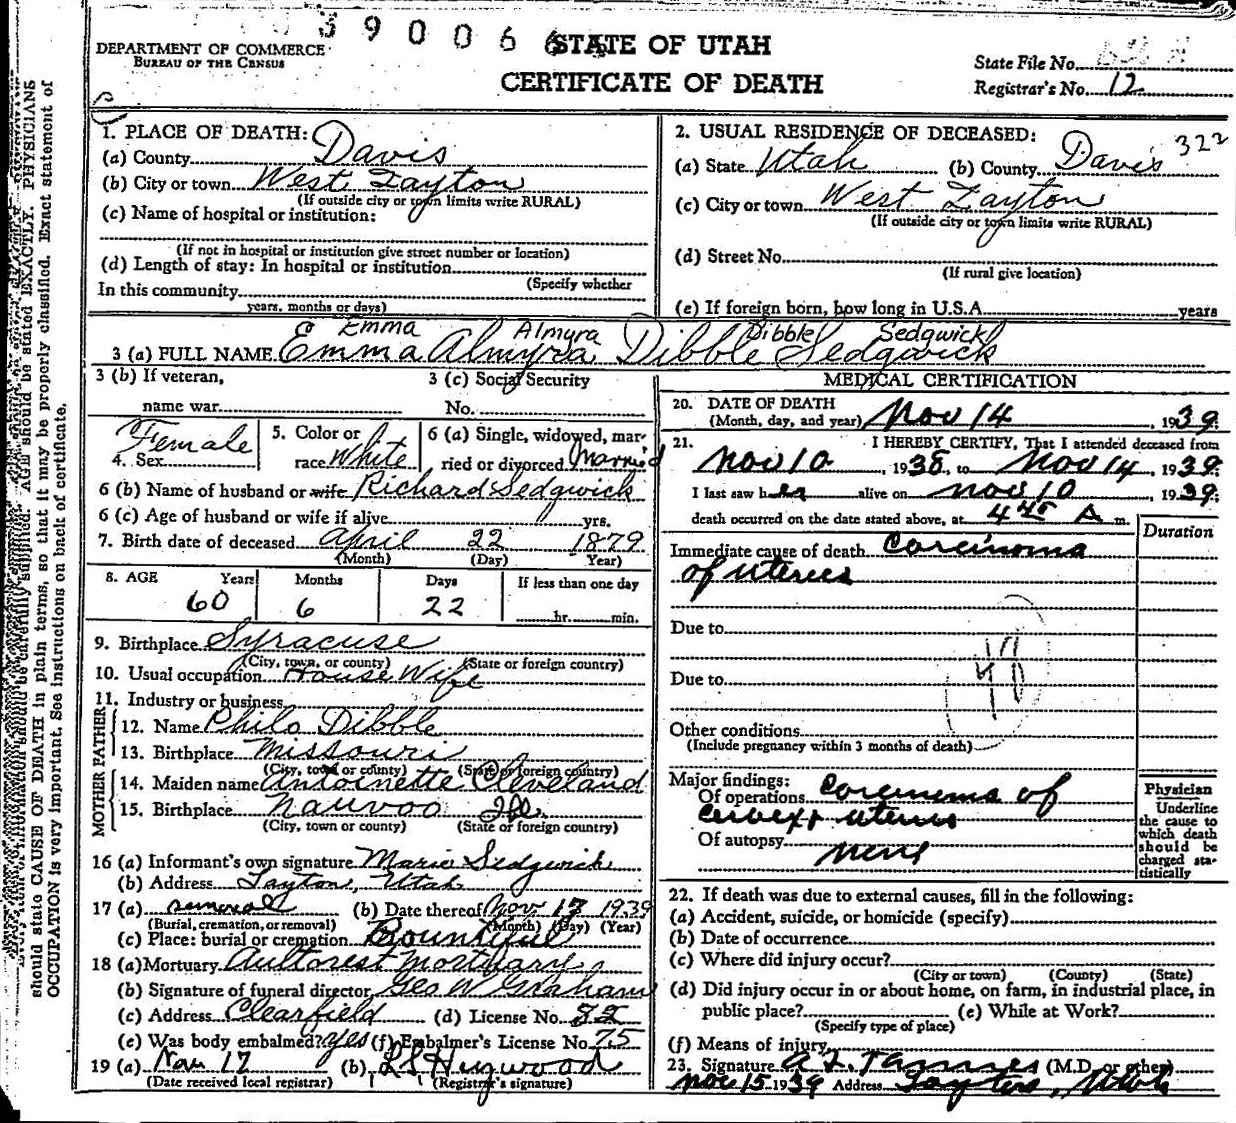 39006
STATE OF UTAH
CERTIFICATE OF DEATH
DEPARTMENT OF COMMERCE
BUREAU OF THE CENSUS
State File No.
Registrar's No. 12
should state CAUSE OF DEATH in plain terms, so that it may be properly classified. Exact statement of
OCCUPATION is very important. See instructions on back of certificate.
1. PLACE OF DEATH:
(a) County Davis
(b) City or town West Layton
(If outside city or town limits write RURAL)
(c) Name of hospital or institution:
(If not in hospital or institution give street number or location)
(d) Length of stay: In hospital or institution
(Specify whether
In this community
years, months or days)
2. USUAL RESIDENCE OF DECEASED: 322
(a) State Utah (b) County Davis
(c) City or town West Layton
(If outside city or town limits write RURAL)
(d) Street No.
(If rural give location)
(e) If foreign born, how long in U.S.A. years
Emma Almyra Dibble Sedgwick
3 (a) FULL NAME Emma Almyra Dibble Sedgwick
3 (b) If veteran, name war
3 (c) Social Security No.
4. Sex Female
5. Color or race White
6 (a) Single, widowed, married or divorced Married
6 (b) Name of husband or wife Richard Sedgwick
6 (c) Age of husband or wife if alive yrs.
7. Birth date of deceased April 22 1879
(Month) (Day) (Year)
8. AGE Years Months Days If less than one day
60 6 22 hr. min.
9. Birthplace Syracuse
(City, town, or county) (State or foreign country)
10. Usual occupation House Wife
11. Industry or business
FATHER
12. Name Philo Dibble
13. Birthplace Missouri
(City, town or county) (State or foreign country)
MOTHER
14. Maiden name Antoinette Cleveland
15. Birthplace Nauvoo Ill.
(City, town or county) (State or foreign country)
16 (a) Informant's own signature Marie Sedgwick
(b) Address Layton, Utah
17 (a) removal (b) Date thereof Nov 17 1939
(Burial, cremation, or removal) (Month) (Day) (Year)
(c) Place: burial or cremation Bountiful
18 (a) Mortuary Aultorest Mortuary
(b) Signature of funeral director Geo W Graham
(c) Address Clearfield (d) License No.
(e) Was body embalmed? yes (f) Embalmer's License No. 75
19 (a) Nov 17 (b) L S Heywood
(Date received local registrar) (Registrar's signature)
MEDICAL CERTIFICATION
20. DATE OF DEATH
(Month, day, and year) Nov 14, 1939
21. I HEREBY CERTIFY, That I attended deceased from
Nov 10, 1938, to Nov 14, 1939
I last saw her alive on Nov 10, 1939;
death occurred on the date stated above, at 4 45 A m.
Duration
Immediate cause of death Carcinoma
of uterus
Due to
Due to
Other conditions
(Include pregnancy within 3 months of death)
Major findings:
Of operations Carcinoma of
cervex uterus
Of autopsy None
Physician
Underline
the cause to
which death
should be
charged sta-
tistically
22. If death was due to external causes, fill in the following:
(a) Accident, suicide, or homicide (specify)
(b) Date of occurrence
(c) Where did injury occur?
(City or town) (County) (State)
(d) Did injury occur in or about home, on farm, in industrial place, in
public place? (e) While at Work?
(Specify type of place)
(f) Means of injury
23. Signature A Z. Tanner (M.D. or other)
Nov 15 1939 Address Layton, Utah